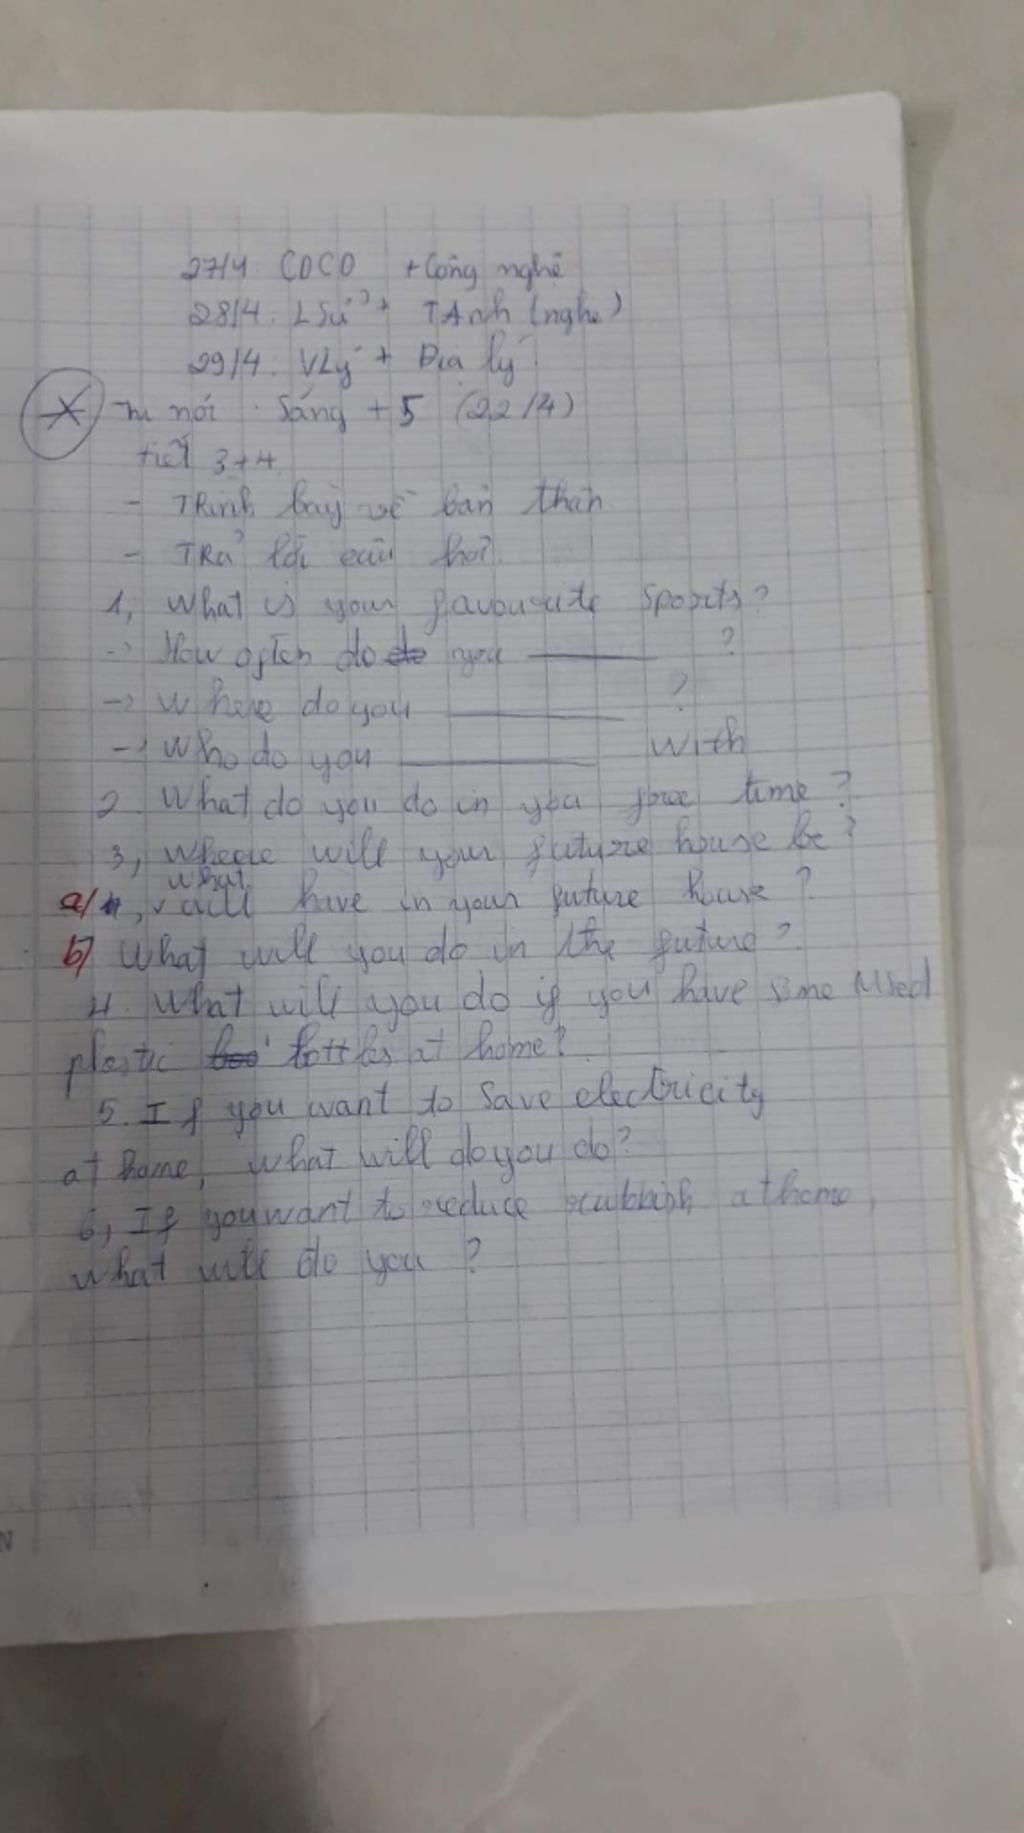 27/4: CDCD + Công nghệ
28/4: LSử + TAnh (nghe)
29/4: VLý + Địa lý
Thi nói: Sáng t5 (22/4)
tiết 3+4
- TRình bày về bản thân
- TRả lời câu hỏi
1, What is your favourite sports?
-> How often do you ______ ?
-> Where do you ______ ?
-> Who do you ______ with
2. What do you do in you free time?
3, Where will your future house be?
what
a/ will have in your future house?
b) What will you do in the future?
4. What will you do if you have some used
plastic bottles at home?
5. If you want to save electricity
at home, what will do you do?
6, If you want to reduce rubbish at home,
what will do you ?